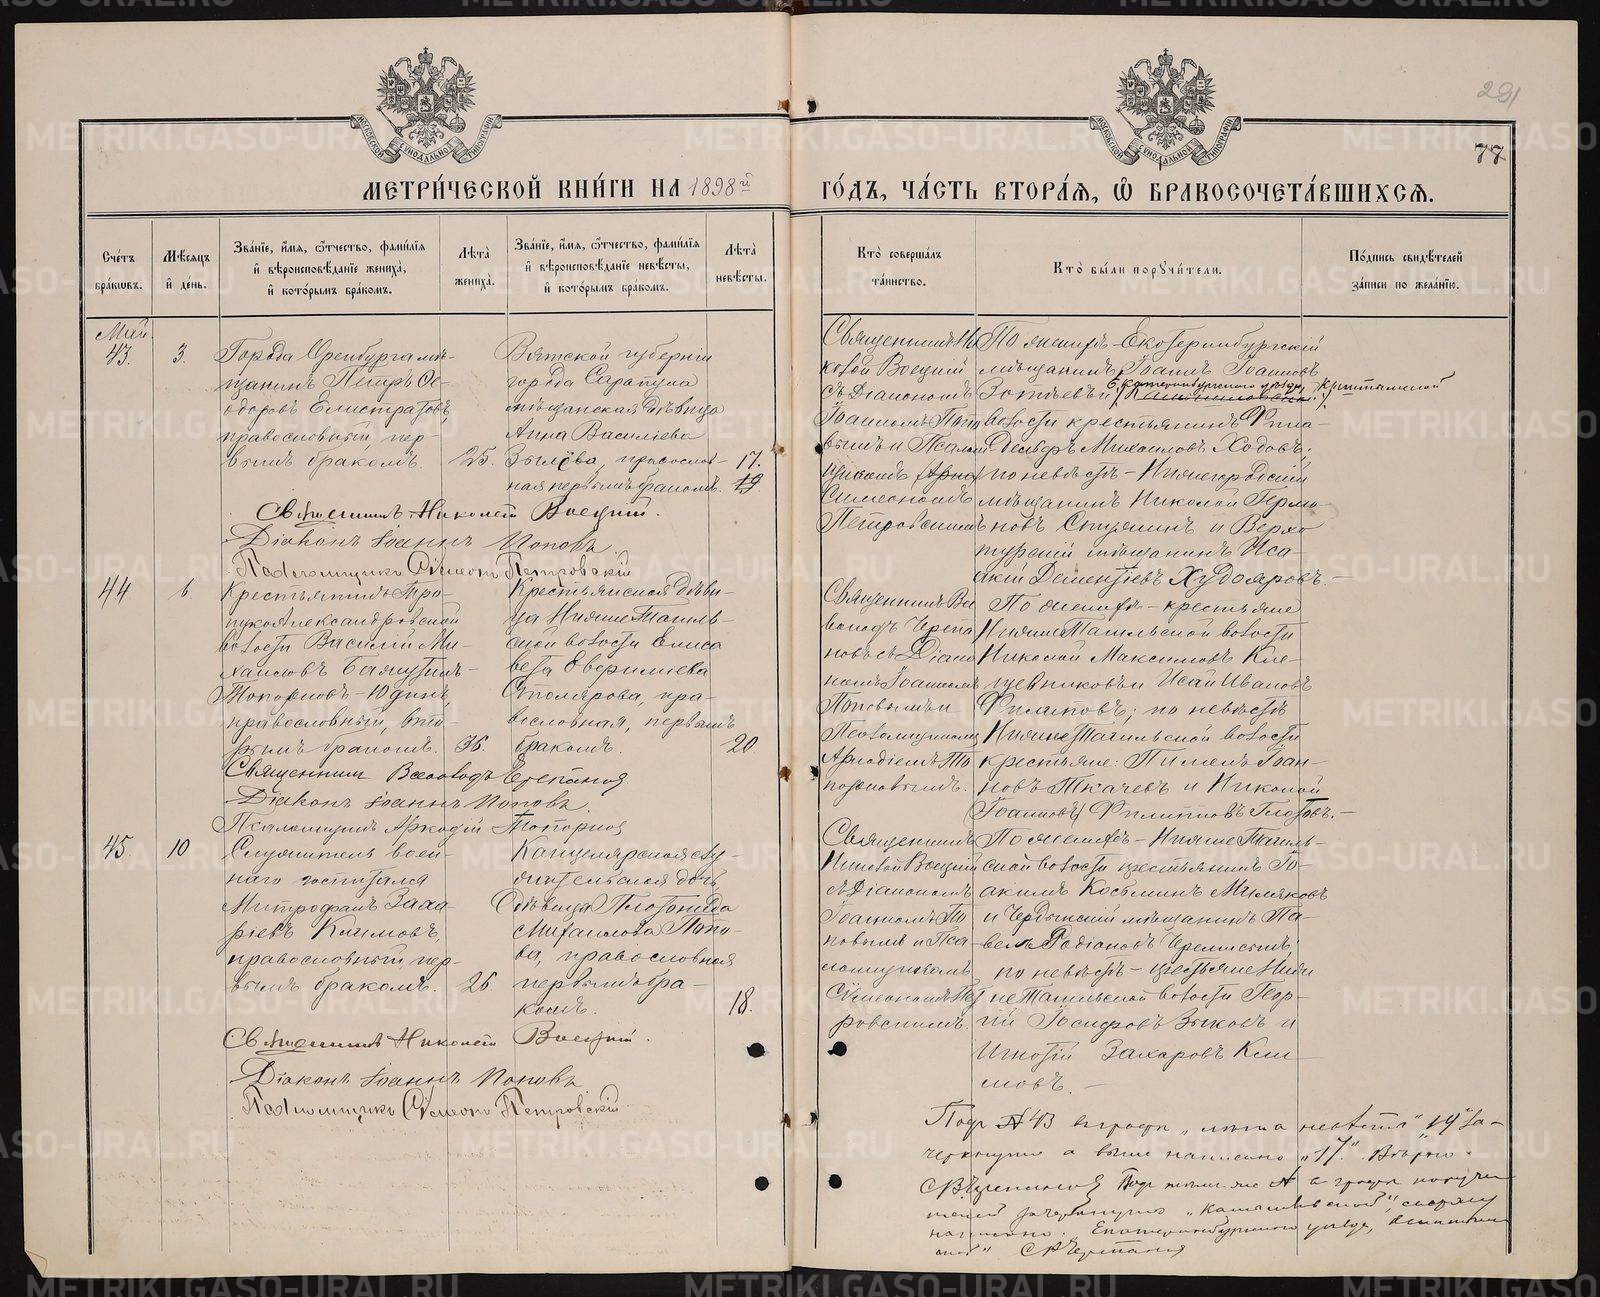 291
77
МОСКОВСКОЙ СѴНОДАЛЬНОЙ ТИПОГРАФІИ
МОСКОВСКОЙ СѴНОДАЛЬНОЙ ТИПОГРАФІИ
МЕТРИ́ЧЕСКОЙ КНИ́ГИ НА 1898й
ГО́ДЪ, ЧА́СТЬ ВТОРА́Я, Ѡ БРАКОСОЧЕТА́ВШИХСЯ.
Сче́тъ бра́ковъ.
Мѣ́сяцъ и де́нь.
Зва́ніе, и́мя, ѻ́тчество, фами́лія и вѣроисповѣ́даніе жениха̀, и кото́рымъ бра́комъ.
Лѣта̀ жениха̀.
Зва́ніе, и́мя, ѻ́тчество, фами́лія и вѣроисповѣ́даніе невѣ́сты, и кото́рымъ бра́комъ.
Лѣта̀ невѣ́сты.
Кто̀ соверша́лъ та́инство.
Кто̀ бы́ли поручи́тели.
По́дпись свидѣ́телей за́писи по жела́нію.
Май
43.
3.
Города Оренбурга мѣ-
щанинъ Петръ Ѳе-
одоровъ Елистратовъ,
православный, пер-
вымъ бракомъ.
25.
Вятской губерніи
города Сарапула
мѣщанская дѣвица
Анна Васильева
Зылёва, православ-
ная первымъ бракомъ.
17.
19
Священникъ Ни
колай Воецкій
съ Діакономъ
Іоанномъ Поп
овымъ и Псалом
щикомъ
Симеономъ
Петровскимъ
По женихѣ - Екатеринбургскій
мѣщанинъ Іоаннъ Іоанновъ
Зотѣевъ и
Екатеринбургскаго уѣзда, Кыштымской
волости крестьянинъ Фила-
дельфъ Михаиловъ Ходовъ;
по невѣстѣ - Нижегородскій
мѣщанинъ Николай Гермо-
новъ Стуринъ и Верхо
турскій мѣщанинъ Иса-
акій Дементіевъ Худояровъ. -
Священникъ Николай Воецкій.
Діаконъ Іоаннъ Поповъ.
Псаломщикъ Сѷмеонъ Петровскій
44
6.
Крестьянинъ Тро-
ицкоАлександровской
волости Василій Ми-
хаиловъ
Топорковъ - Юдинъ,
православный, вто-
рымъ бракомъ.
36.
Крестьянская дѣви-
ца НижнеТагиль-
ской волости Елиса
вета Еверлміева
Столярова, пра-
вославная, первымъ
бракомъ.
20
Священникъ Все
володъ Черепа
новъ съ Діако
номъ Іоанномъ
Поповымъ и
Псаломщикомъ
Аркадіемъ То
порковымъ.
По женихѣ - крестьяне
НижнеТагильской волости
Николай Максимовъ Кле-
щевниковъ и Исай Ивановъ
Филяповъ; по невѣстѣ
НижнеТагильской волости
крестьяне: Пименъ Іоан-
новъ Ткачевъ и Николай
Іоанновъ Филипповъ Глотовъ. -
Священникъ Всеволодъ Черепановъ
Діаконъ Іоаннъ Поповъ.
Псаломщикъ Аркадій Топорковъ
45.
10
Служитель воен-
наго госпиталя
Митрофанъ Заха-
ріевъ Климовъ,
православный пер-
вымъ бракомъ.
26
Канцелярская слу-
жительская дочь
дѣвица Платонида
Михаилова Попо-
ва, православная
первымъ бра-
комъ.
18.
Священникъ
Николай Воецкій
съ Діакономъ
Іоанномъ По
повымъ и Пса
ломщикомъ
Сѷмеономъ Пет
ровскимъ.
По женихѣ - НижнеТагиль-
ской волости крестьянинъ Іо-
акимъ Косьминъ Миляковъ
и Чердынскій мѣщанинъ Па-
велъ Родіоновъ Черемисинъ;
по невѣстѣ - крестьяне Ниж
неТагильской волости Геор-
гій Іосифовъ Зыковъ и
Игнатій Захаровъ Кли-
мовъ. -
Священникъ Николай Воецкій.
Діаконъ Іоаннъ Поповъ
Псаломщикъ Сѷмеонъ Петровскій
Подъ № 43 въ графѣ „лѣта невѣсты" „19" за-
черкнуто а выше написано „17". Вѣрно.
Св. В. Черепановъ Подъ тѣмъ-же № въ графѣ поручи
телей зачеркнуто сверху
написано: Екатеринбургскаго уѣзда, Кыштым
ской" Св. В. Черепановъ